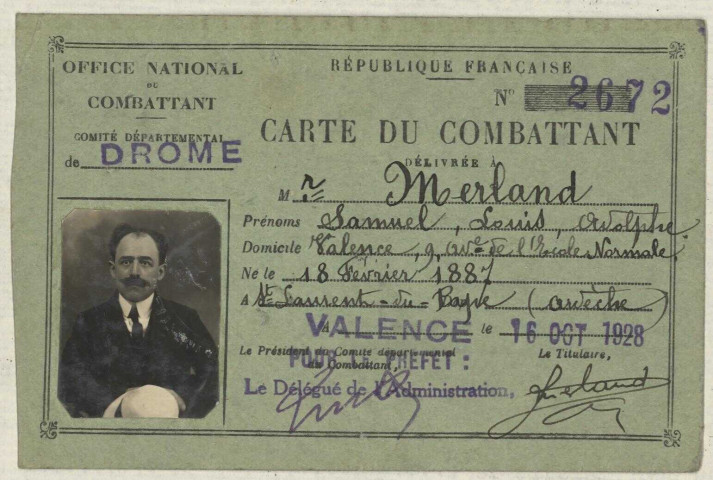 OFFICE NATIONAL
DU
COMBATTANT
COMITÉ DÉPARTEMENTAL
de DROME
RÉPUBLIQUE FRANÇAISE
N° 2672
CARTE DU COMBATTANT
DÉLIVRÉE À
M r Merland
Prénoms Samuel, Louis, Adolphe.
Domicile Valence, 9, Ave de l'Ecole Normale.
Né le 18 Février 1887
A St Laurent-du-Pape (Ardèche)
A VALENCE le 16 OCT 1928
Le Président du Comité départemental
du Combattant,
Le Titulaire,
POUR LE PREFET :
Le Délégué de l'Administration,